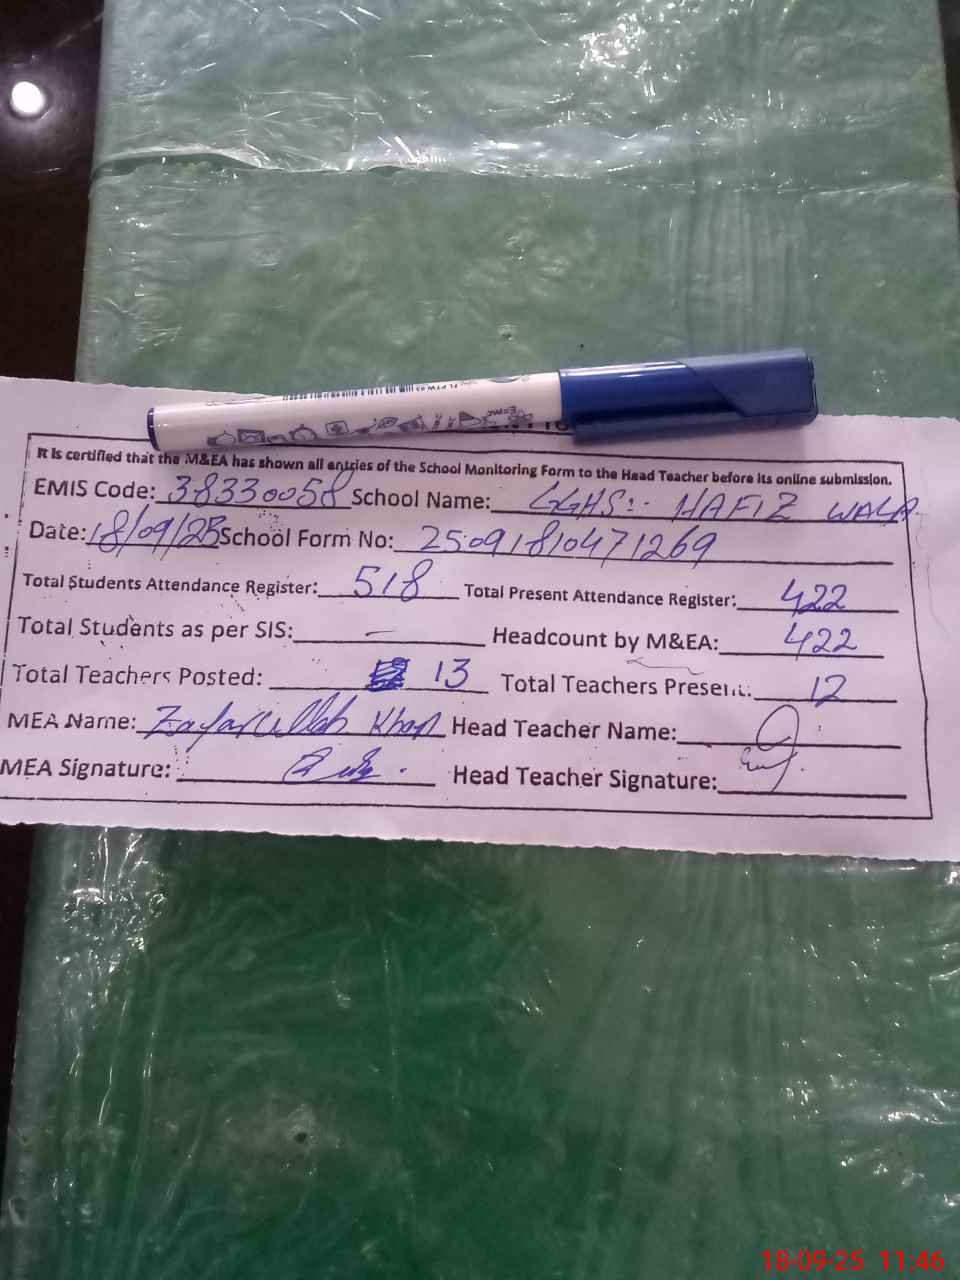 It is certified that the M&EA has shown all entries of the School Monitoring Form to the Head Teacher before its online submission.
EMIS Code: 38330058 School Name: GGHS:- HAFIZ WALA
Date: 18/09/25 School Form No: 2509181047 1269
Total Students Attendance Register: 518 Total Present Attendance Register: 422
Total Students as per SIS: - Headcount by M&EA: 422
Total Teachers Posted: 13 Total Teachers Present: 12
MEA Name: Zafarullah Khan Head Teacher Name:
MEA Signature: Head Teacher Signature:
18-09-25 11:46